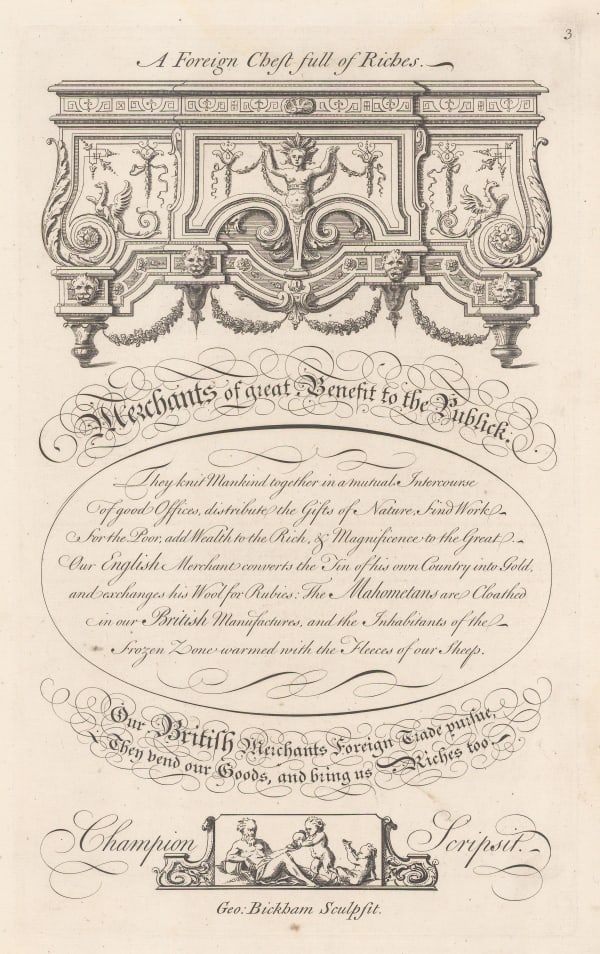 3
A Foreign Cheſt full of Riches.
Merchants of great Benefit to the Publick:
They knit Mankind together in a mutual Intercourse
of good Offices, distribute the Gifts of Nature, Find Work
For the Poor, add Wealth to the Rich, & Magnificence to the Great.
Our English Merchant converts the Tin of his own Country into Gold,
and exchanges his Wool for Rubies: The Mahometans are Cloathed
in our British Manufactures, and the Inhabitants of the
Frozen Zone warmed with the Fleeces of our Sheep.
Our Britiſh Merchants Foreign Trade purſue,
They vend our Goods, and bring us Riches too.
Champion Scripsit.
Geo: Bickham Sculpſit.